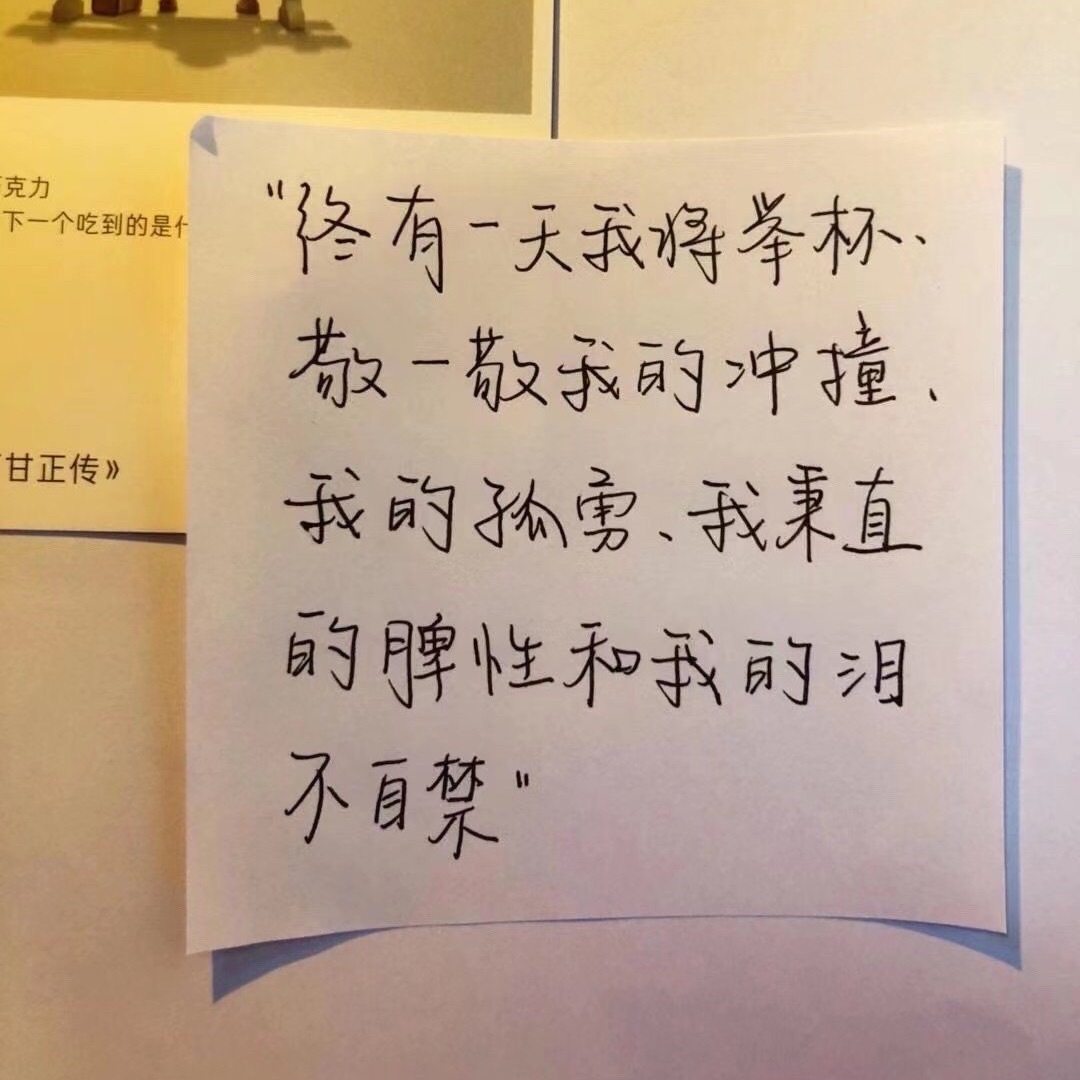 克力
下一个吃到的是什
甘正传》
“终有一天我将举杯、
敬一敬我的冲撞、
我的孤勇、我秉直
的脾性和我的泪
不自禁”